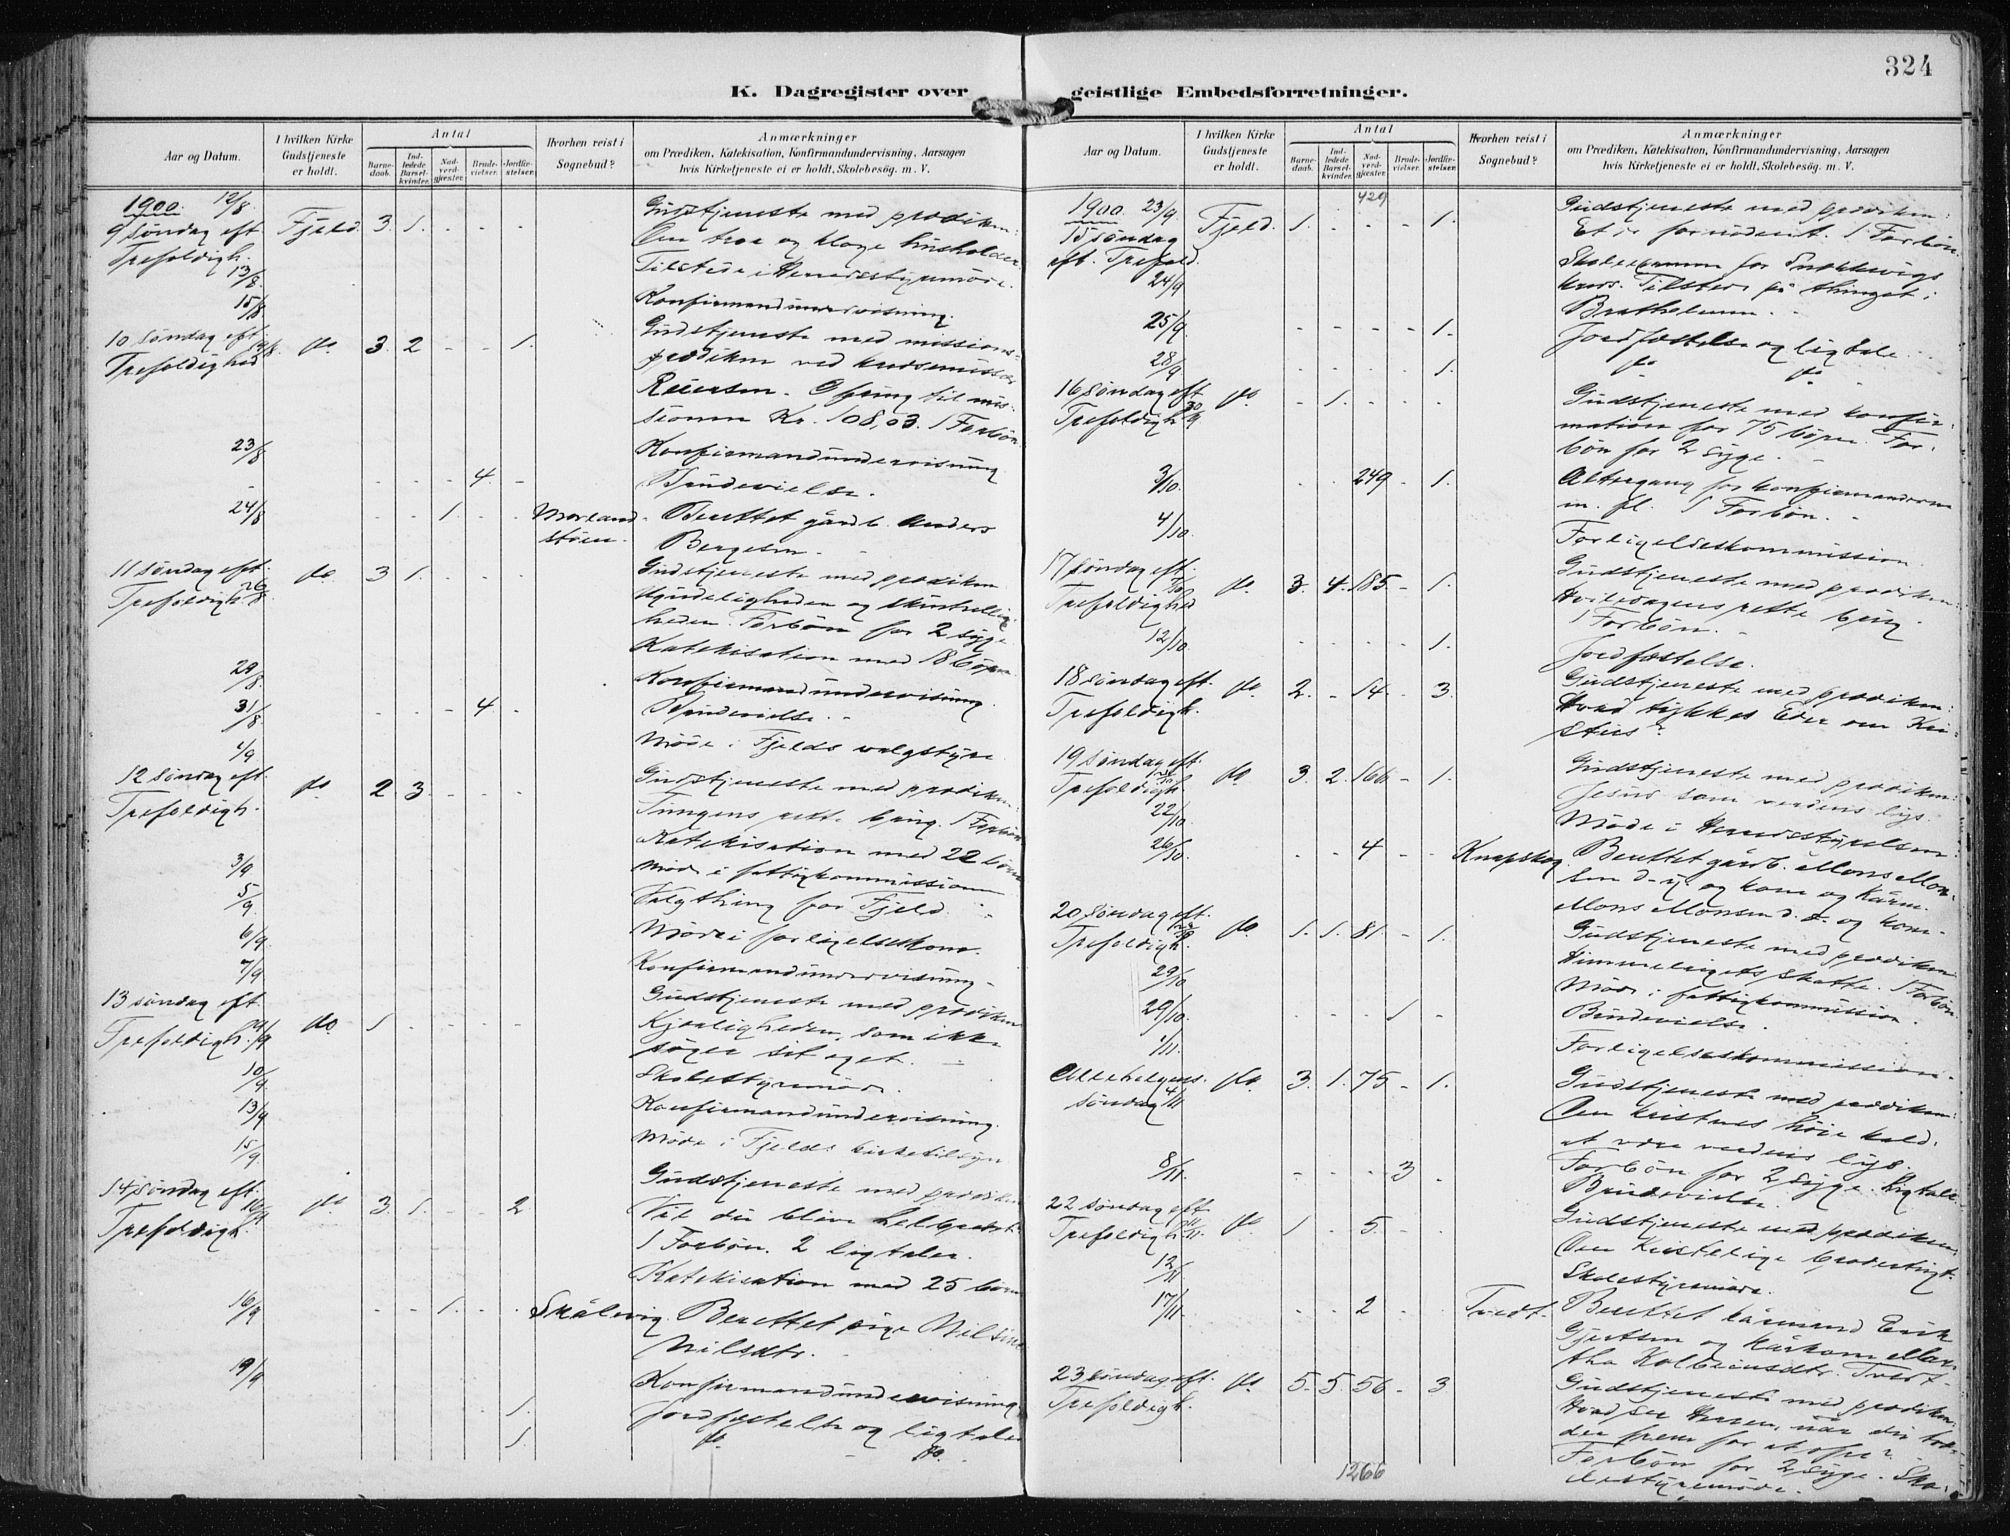 324
K. Dagregister over geistlige Embedsforretninger.
Aar og Datum.
I hvilken Kirke Gudstjeneste er holdt.
Antal
Barnedaab.
Indledede Barselkvinder.
Nadverdgjæster.
Brudevielser.
Jordfæstelser.
Hvorhen reist i Sognebud?
Anmærkninger
om Prædiken, Katekisation, Konfirmandundervisning, Aarsagen
hvis Kirketjeneste ei er holdt, Skolebesøg. m. V.
1900. 12/8 Gudstjeneste med prædiken:
9 søndag eft. Fjeld 3 1. - - - Den tro og kloge husholder.
Trefoldigh.
13/8 Tilstede i Herredsstyremöde.
15/8 Konfirmandundervisning.
10 søndag eft. 19/8 do 3 2 - - 1. Gudstjeneste med missions-
Trefoldighed prædiken ved
Reiersen. Ofring til mis-
sionen Kr. 108,03. 1 Forbön
23/8 Konfirmandundervisning
- - - 4 - Brudevielse.
24/8 - - 1. - - Morland- Berettet gårdb. Anders
støen. Bergesen.
11 søndag eft. do 3 1. - - - Gudstjeneste med prædiken
Trefoldigh. 26/8 Ugudeligheden og skinhellig-
heden. Forbön for 2 syge
Katekisation med 18 börn
29/8 Konfirmandundervisning.
31/8 - - - 4 - Brudevielse.
1/9 Möde i Fjelds valgstyre
12 søndag eft. do 2 3 - - - Gudstjeneste med prædiken
Trefoldigh. Tungens rette brug. 1 Forbön
Katekisation med 22 börn
3/9 Möde i fattigkommissionen
5/9 Valgthing for Fjeld.
6/9 Möde i forligelseskom.
7/9 Konfirmandundervisning.
13 søndag eft. Gudstjeneste med prædiken
Trefoldigh. 9/9 do. 1 - - - - Kjærligheden, som ikke
søger sit eget.
10/9 Skolestyremöde.
13/9 Konfirmandundervisning.
15/9 Möde i Fjelds kirketilsyn
14 søndag eft. Gudstjeneste med prædiken
Trefoldigh. 16/9 do 3. 1. - - 2 Vil du blive helbredet?
1 Forbön. 2 ligtaler.
Katekisation med 25 börn
16/9 - - 1. - - Skålevig. Berettet pige Nilsine
Nilsdtr.
19/9 Konfirmandundervisning
1. Jordfæstelse og ligtale
1. do do.
Aar og Datum.
I hvilken Kirke Gudstjeneste er holdt.
Antal
Barnedaab.
Indledede Barselkvinder.
Nadverdgjæster.
Brudevielser.
Jordfæstelser.
Hvorhen reist i Sognebud?
Anmærkninger
om Prædiken, Katekisation, Konfirmandundervisning, Aarsagen
hvis Kirketjeneste ei er holdt, Skolebesög. m. V.
429
1900. 23/9 Fjeld. 1. - - - 1. Gudstjeneste med prædiken:
15 søndag Et er fornødent. 1 Forbön
eft. Trefold.
24/9 for
kreds. Tilstede på thinget i
Brattholmen.
25/9 - - - - 1. Jordfæstelse og ligtale
28/9 - - - - 1. do do
16 søndag eft. do - 1. Gudstjeneste med konfir-
Trefoldigh. 30/9 mation for 75 börn. For-
bön for 2 syge.
3/10 - - 249 - 1. Altergang for konfirmanderne
m. fl. 1 Forbön.
4/10. Forligelseskommission.
17 søndag eft. do 3. 4. 185 - 1. Gudstjeneste med prædiken:
Trefoldighed 7/10 Hviledagens rette brug
1 Forbön.
12/10 - - - - 1. Jordfæstelse.
18 søndag eft. do 2. - 14 - 3. Gudstjeneste med prædiken:
Trefoldigh. Hvad tykkes Eder om Kri-
stus?
19 søndag eft. do 3. 2. 166 - 1. Gudstjeneste med prædiken:
Trefoldigh. Jesus som verdens lys.
22/10. Möde i Herredsstyrelsen.
26/10. - - 4 - - Knapskog. Berettet gårdb. Mons Mon-
sen d. y. og kone og kårm.
Mons Monsen d. æ. og kone.
20 søndag eft. do. 1. 1. 81 - 1. Gudstjeneste med prædiken
Trefoldigh. 28/10 Himmerigets skatte. 1 Forbön
29/10 Möde i fattigkommission.
29/10. 1 - Brudevielse.
1/11. Forligelseskommission.
Allehelgens- do. 3. 1. 75 - 1. Gudstjeneste med prædiken:
søndag 4/11 Den kristnes høie kald,
at være verdens lys.
Forbön for 2 syge. Ligtale
8/11. - - - 3 Brudevielse.
22 søndag eft. Gudstjeneste med prædiken:
Trefoldigh. 11/11. do. 1 - 5. - - Den Kristelige broderpligt.
12/11 Skolestyremöde.
17/11. - - 2 - Tvedt. Berettet kårmand Erik
Gjertsen og kårkone Mar-
tha Kolbeinsdtr. Tvedt.
23 søndag eft. do. 5. 5. 56 - 3 Gudstjeneste med prædiken:
Trefoldigh. Hvad ser Herren, når du træ-
der frem for at ofre?
Forbön for 2 syge. Sko-
lestyremöde.
1266